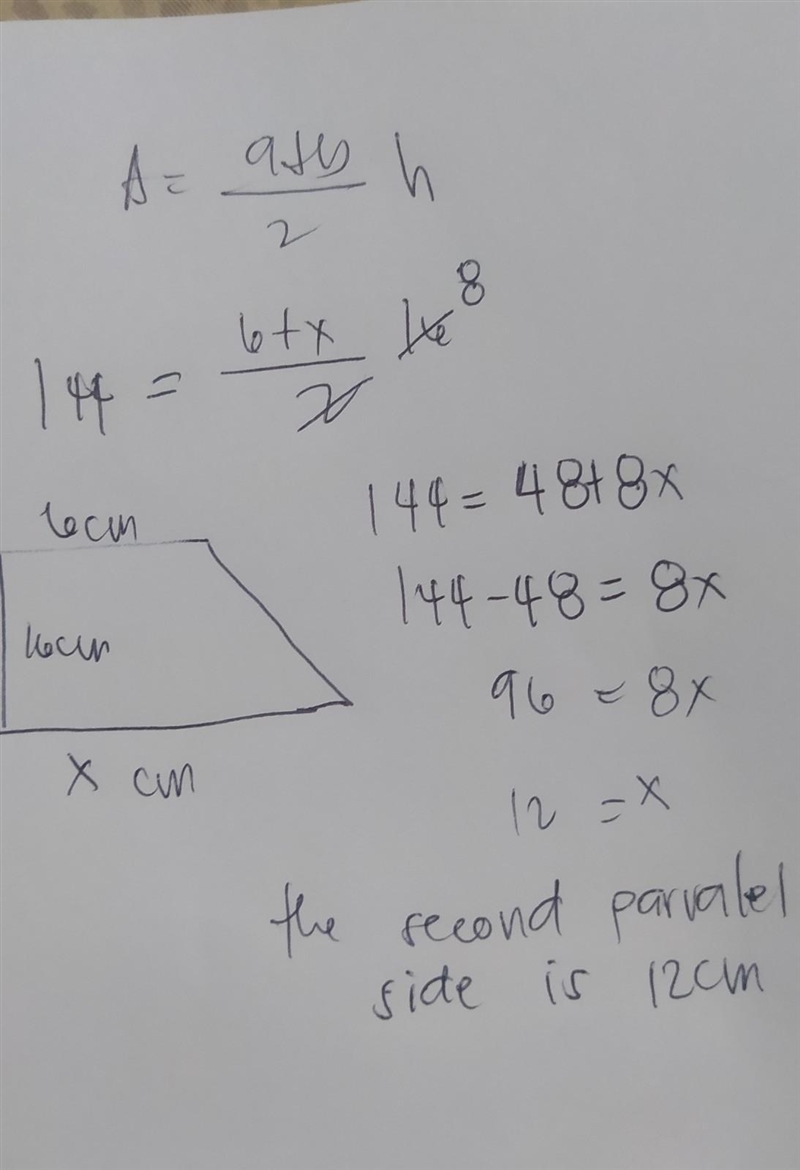 A = a+b/2 h
144 = 6+x/2 16 8
144 = 48+8x
6cm
144-48 = 8x
16cm
96 = 8x
x cm
12 = x
the second parralel
side is 12cm